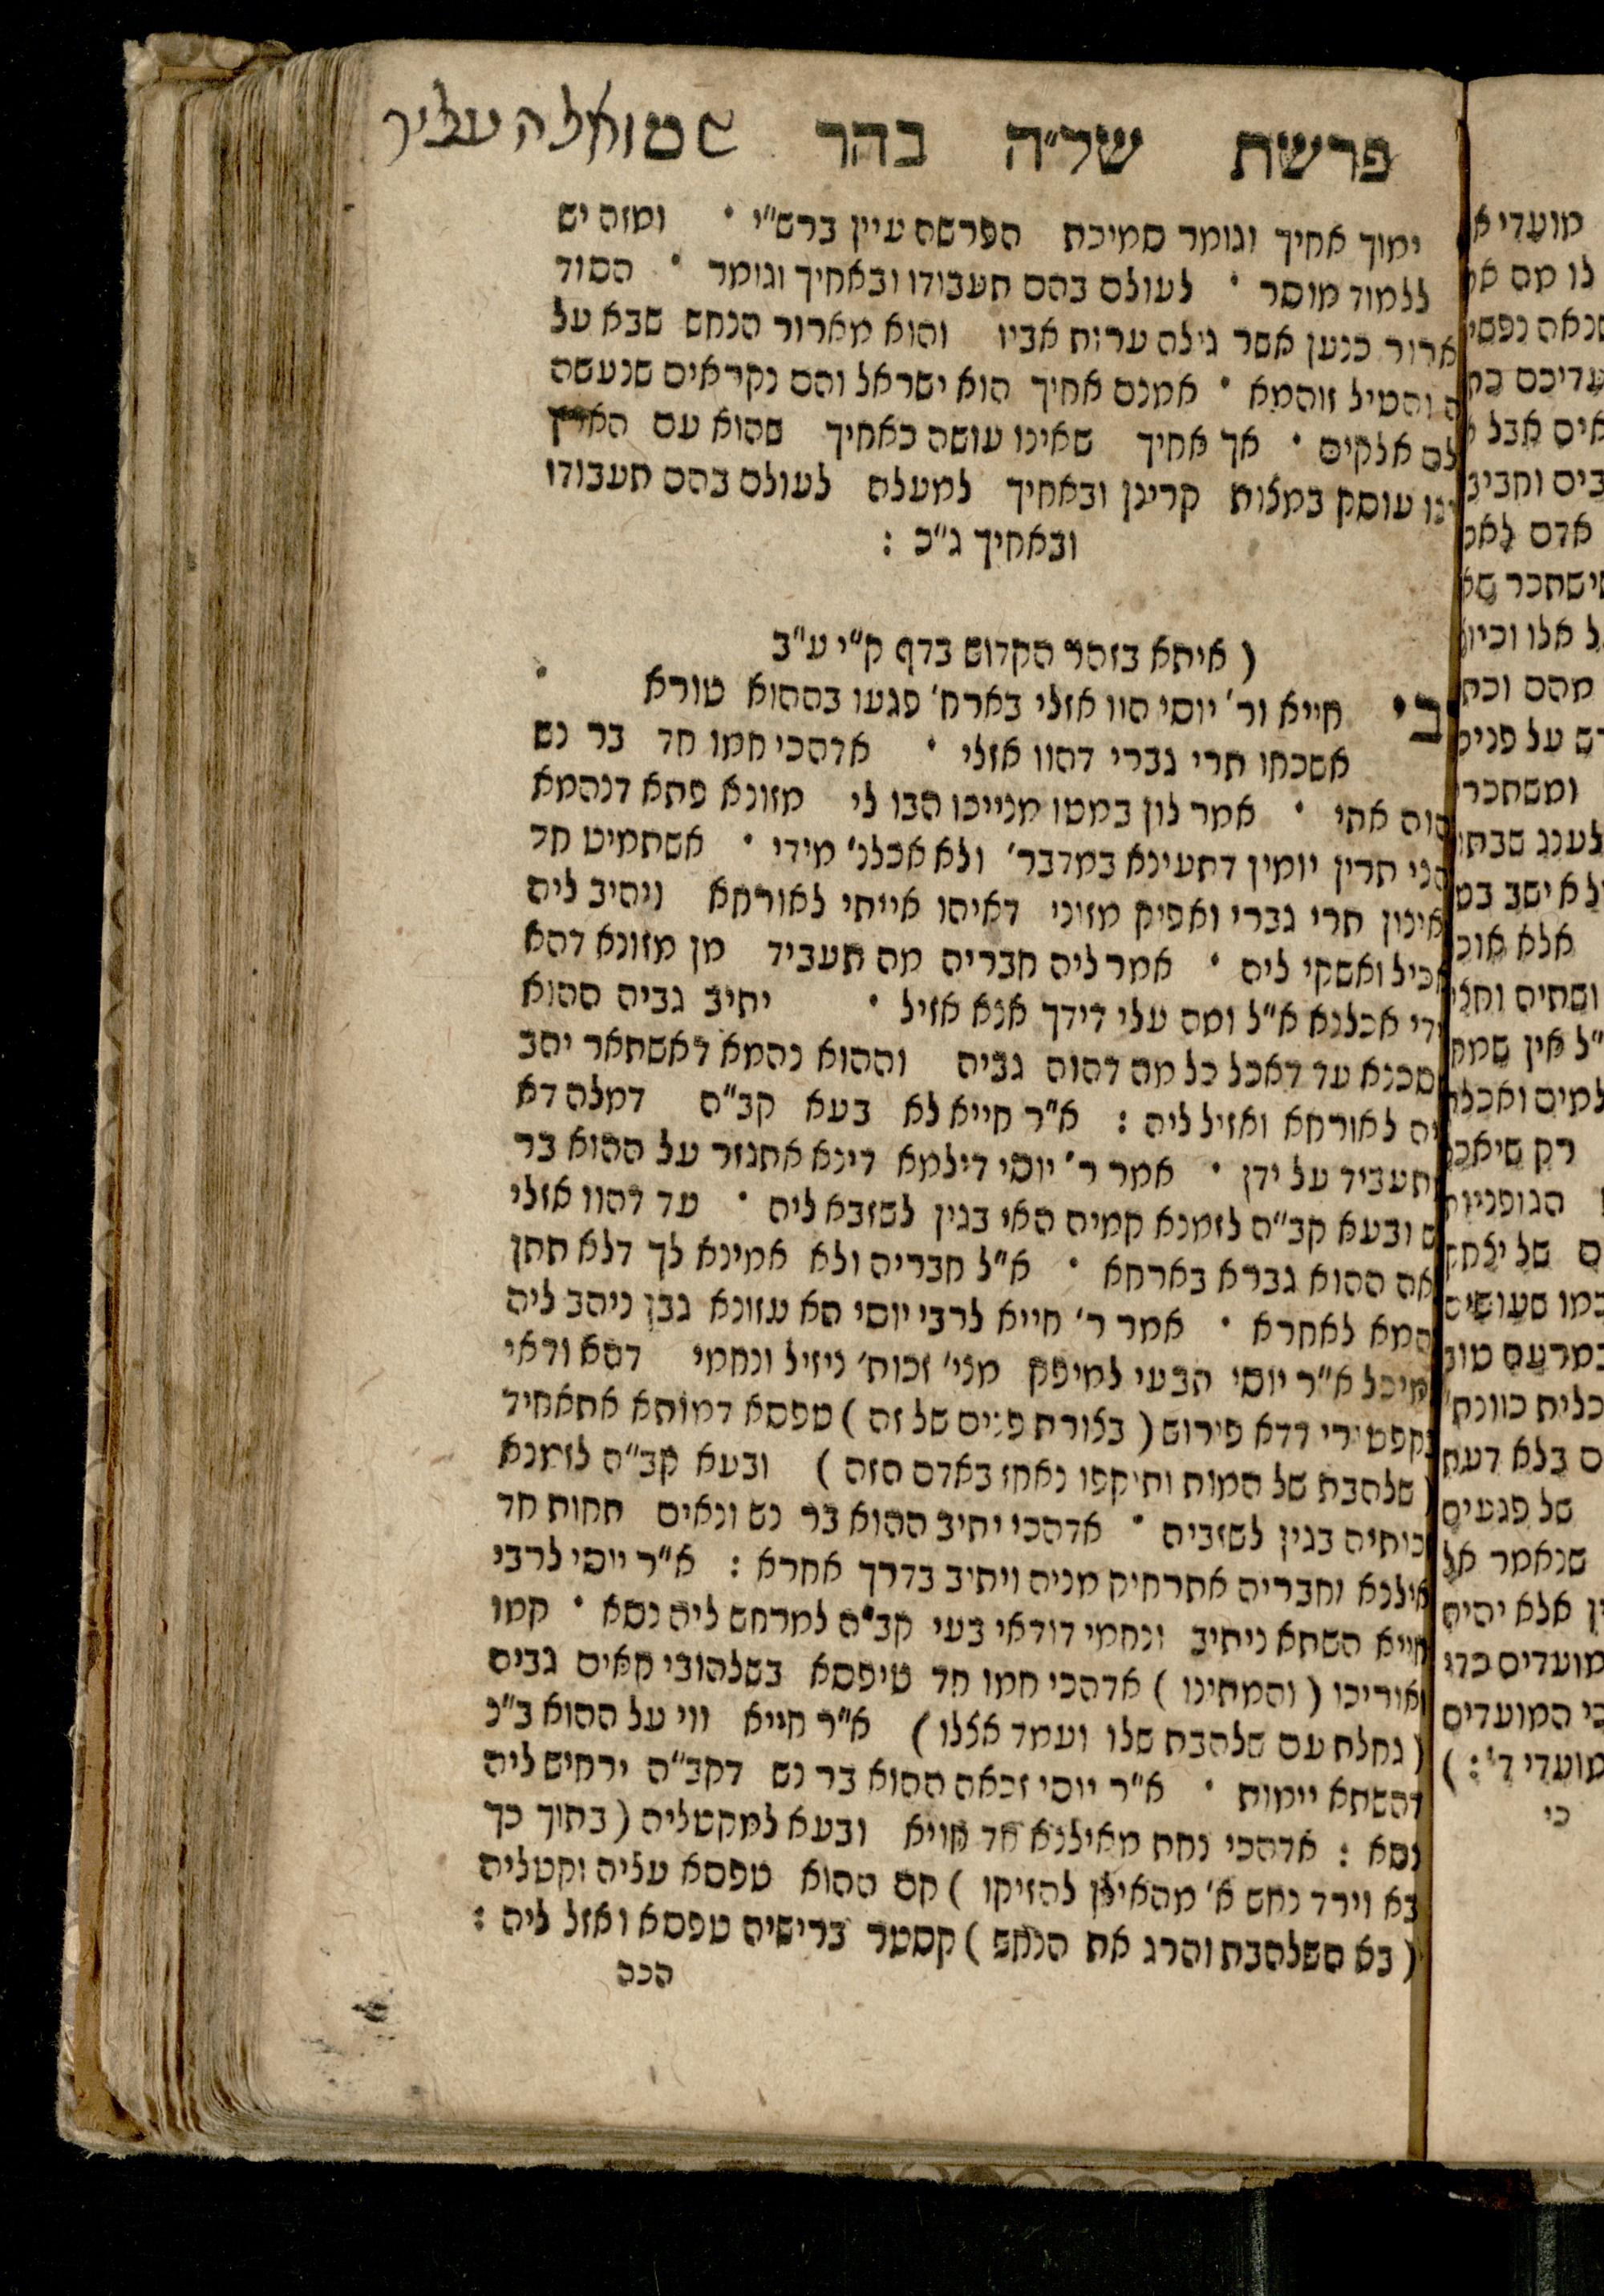 פרשת של״ה בהר
ימוך אחיך וגומר סמיכת הפרשה עיין ברש״י • ומזה יש
ללמוד מוסר • לעולם בהם תעבודו ובאחיך וגומר • הסוד
ארור כנען אשר גילה ערות אביו והוא מארור הנחש שבא על
והטיל זוהמא • אמנם אחיך הוא ישראל והם נקראים שנעשה
אלקים • אך אחיך שאינו עושה כאחיך שהוא עם הארץ
עוסק במצות קרינן ובאחיך למעלה לעולם בהם תעבודו
ובאחיך ג״כ :
( איתא בזהר הקדוש בדף ק״י ע״ב
בי חייא ור׳ יוסי הוו אזלי בארח׳ פגעו בההוא טורא •
אשכחו תרי גברי דהוו אזלי • אדהכי חמו חד בר נש
הוה אתי • אמר לון במטו מנייכו הבו לי מזונא פתא דנהמא
תרין יומין דתעינא במדבר׳ ולא אכלנ׳ מידי • אשתמיט חד
אינון תרי גברי ואפיק מזוני דאיהו אייתי לאורחא ויהיב ליה
אכיל ואשקי ליה • אמר ליה חבריה מה תעביד מן מזונא דהא
אכלנא א״ל ומה עלי דידך אנא אזיל • יתיב גביה ההוא
מסכנא עד דאכל כל מה דהוה גביה וההוא נהמא דאשתאר יהב
ליה לאורחא ואזיל ליה : א״ר חייא לא בעא קב״ה דמלה דא
תעביד על ידן • אמר ר׳ יוסי דילמא דינא אתגזר על ההוא בר
נש ובעא קב״ה לזמנא קמיה האי בגין לשזבא ליה • עד דהוו אזלי
ההוא גברא בארחא • א״ל חבריה ולא אמינא לך דלא תתן
נהמא לאחרא • אמר ר׳ חייא לרבי יוסי הא מזונא גבן ניהב ליה
למיכל א״ר יוסי הבעי למיפק מני׳ זכות׳ ניזיל ונחמי דהא ודאי
בקפטירי דדא פירוש ( בצורת פנים של זה ) טפסא דמותא אתאחיד
( שלהבת של המות ותיקפו נאחז באדם הזה ) ובעא קב״ה לזמנא
זכותיה בגין לשזביה • אדהכי יתיב ההוא בר נש ונאים תחות חד
אילנא וחבריה אתרחיק מניה ויתיב בדרך אחרא : א״ר יוסי לרבי
חייא השתא ניתיב ונחמי דודאי בעי קב״ה למרחש ליה נסא • קמו
ואוריכו ( והמתינו ) אדהכי חמו חד טיפסא בשלהובי קאים גביה
( גחלת עם שלהבת שלו ועמד אצלו ) א״ר חייא ווי על ההוא ב״נ
דהשתא יימות • א״ר יוסי זכאה ההוא בר נש דקב״ה ירחיש ליה
נסא : אדהכי נחת מאילנא חד חויא ובעא למקטליה ( בתוך כך
בא וירד נחש א׳ מהאילן להזיקו ) קם ההוא טפסא עליה וקטליה
( בא השלהבת והרג את הנחש ) קסטר ברישיה טפסא ואזל ליה :
הכה
מועדי
לו מה
שנאה נפשי
אבל
אדם
שישתכר
אלו וכיון
מהם
על פנים
לענג
ולא ישב
אלא
אין שמחה
למים
רק
הגופניות
של
כמו שעושים
כוונת׳
בלא דעת
של פגעים
שנאמר
אלא יהיה
מועדים כדי
המועדים
מועדי ד׳ : )
כי